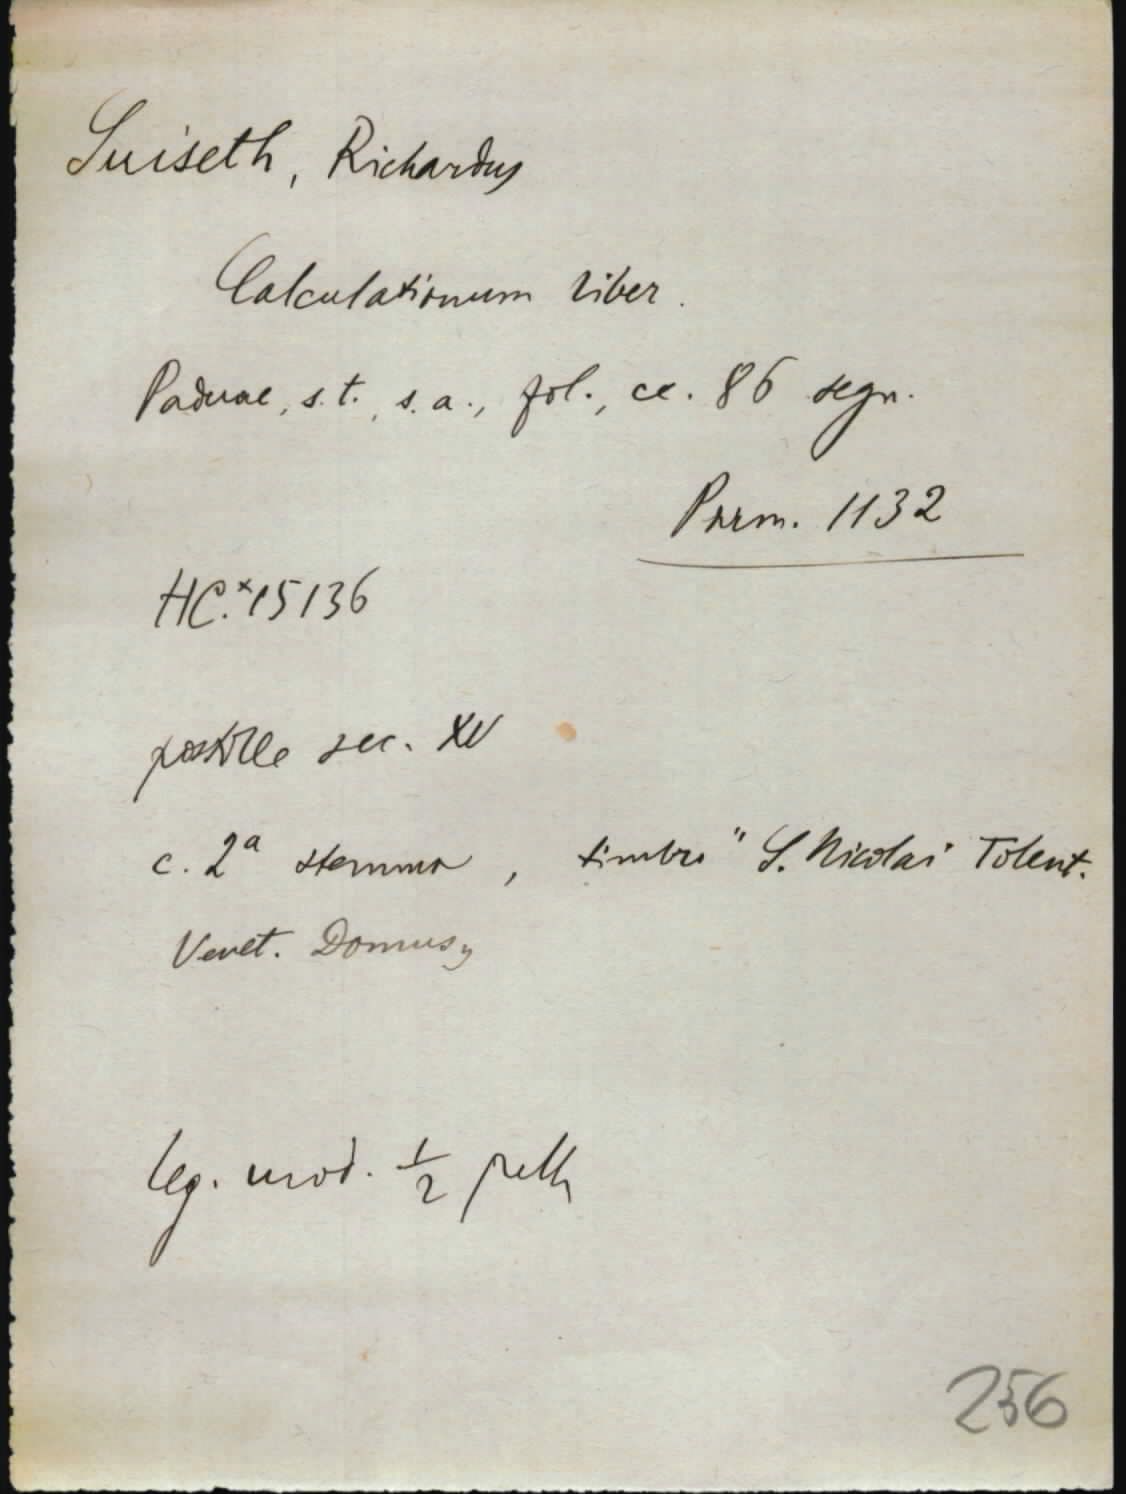 Suiseth, Richardus
Calculationum liber.
Paduae, s.t., s.a., fol., cc. 86 segn.
Parm. 1132
HC.*15136
postille sec. XV
c. 2ª stemma, timbro "S. Nicolai Tolent.
Venet. Domus„
leg. mod. ½ pelle
256